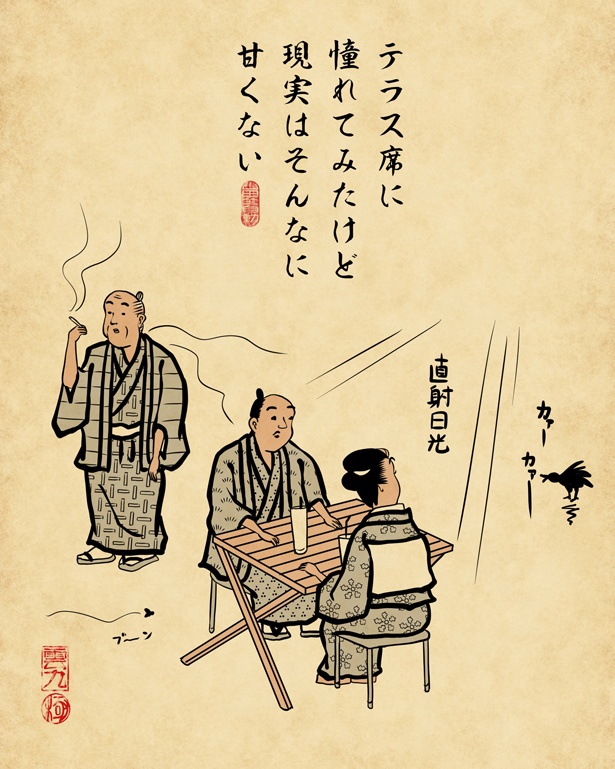 テラス席に
憧れてみたけど
現実はそんなに
甘くない
直射日光
カァー
カァー
ブーン